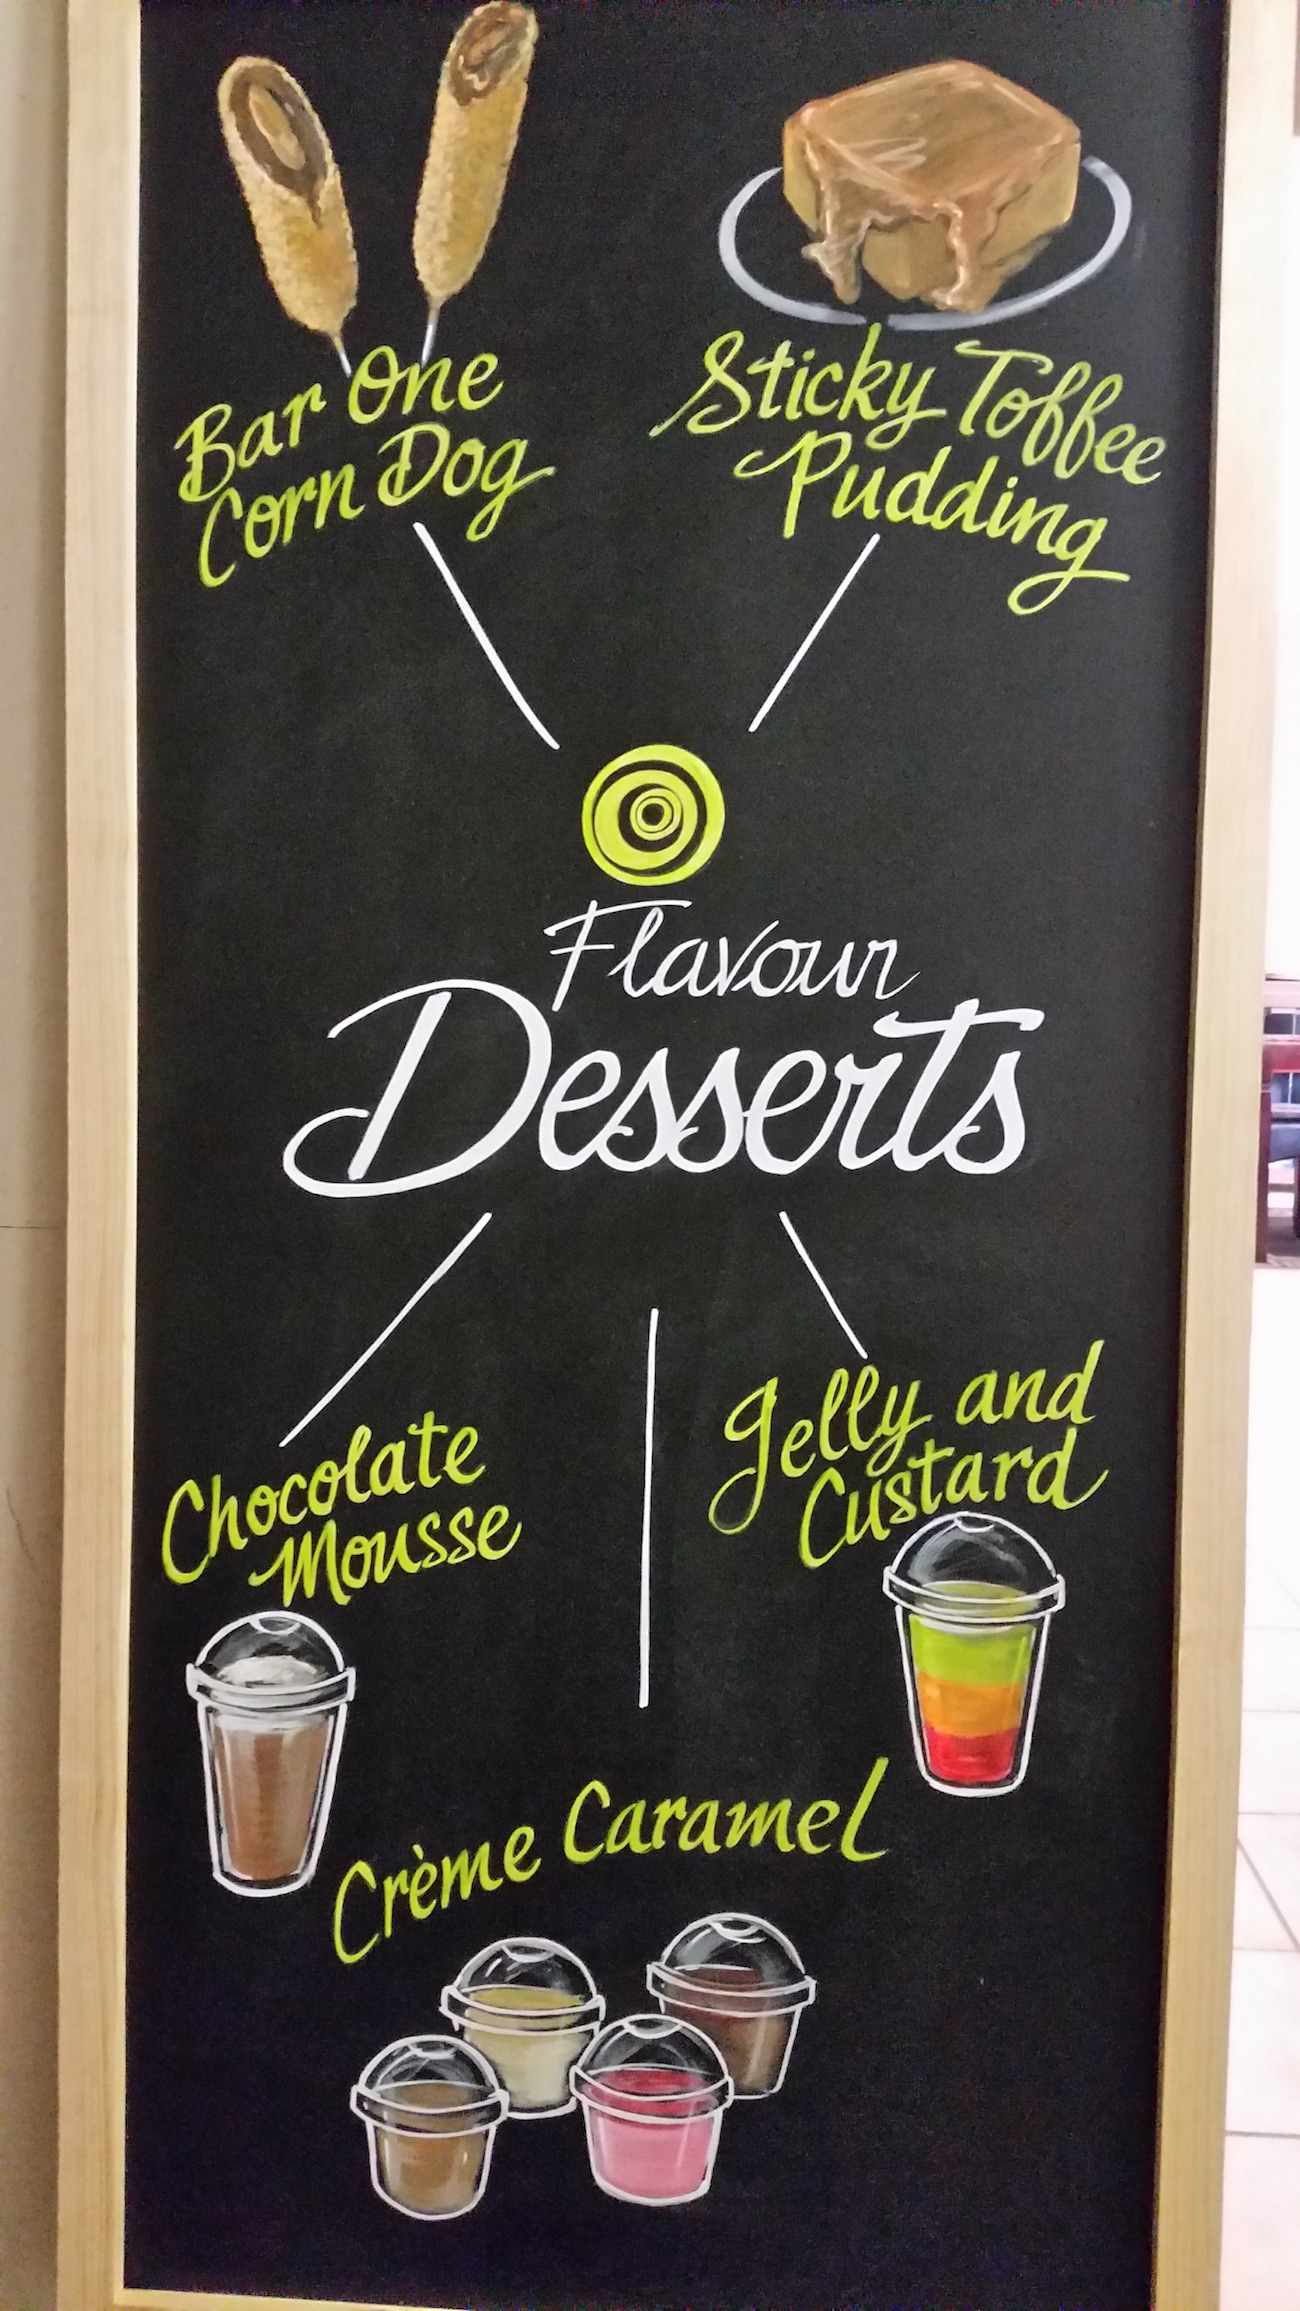 Bar One
Corn Dog
Sticky Toffee
Pudding
Flavour
Desserts
Chocolate
Mousse
Jelly and
Custard
Crème Caramel